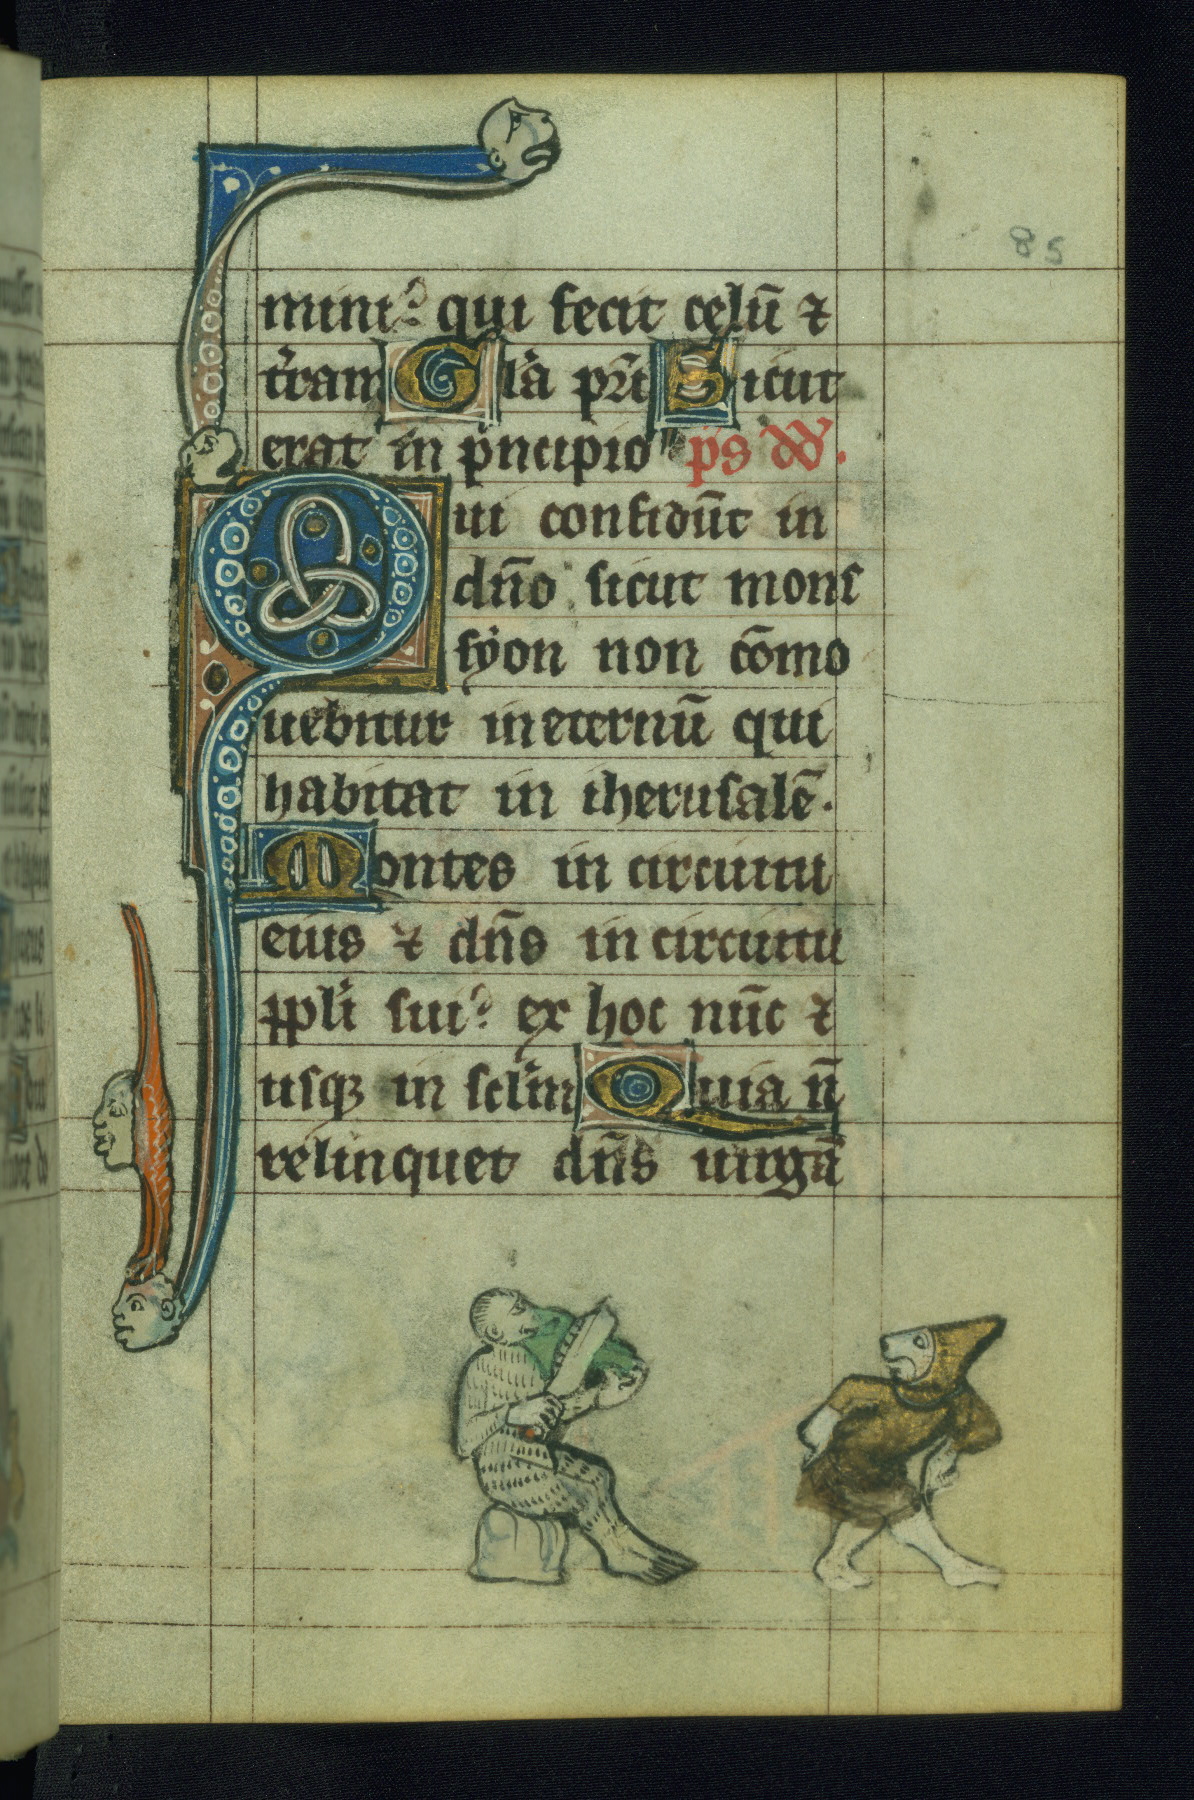 85
mini. qui fecit celū ⁊
t̄ram Gl̓a pr̄i Sicut
erat in p̓ncipio ps̄ dd̄.
Qui confidūt in
dn̄o sicut mons
syon non cōmo
uebitur in eternū qui
habitat in iherusalē.
Montes in circuitu
eius ⁊ dn̄s in circuitu
ppl̓i sui. ex hoc nūc ⁊
usqꝫ in scl̓m Quia n̄
relinquet dn̄s uirgā